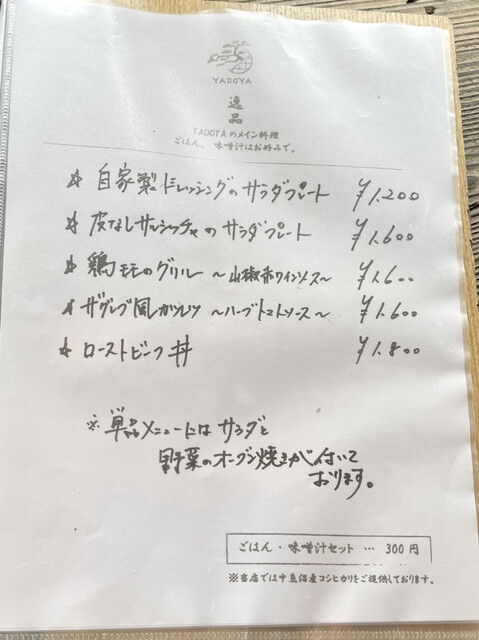 YADOYA
逸
品
YADOYAのメイン料理
ごはん、味噌汁はお好みで。
☆ 自家製ドレッシングのサラダプレート ¥1,200
☆ 皮なしサルシッチャのサラダプレート ¥1,600
☆ 鶏モモのグリル 〜山椒赤ワインソース〜 ¥1,600
☆ ザグレブ風カツレツ 〜ハーブトマトソース〜 ¥1,600
☆ ローストビーフ丼 ¥1,800
※ 単品メニューにはサラダと
野菜のオーブン焼きが付いて
おります。
ごはん・味噌汁セット … 300円
※当店では中魚沼産コシヒカリをご提供しております。